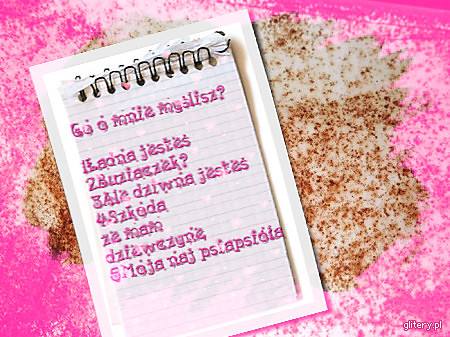 Co o mnie myślisz?
1Ładna jesteś
2Buziaczek?
3Ale dziwna jesteś
4Szkoda
że mam
dziewczynę
5Moja naj psiapsióła
glitery.pl